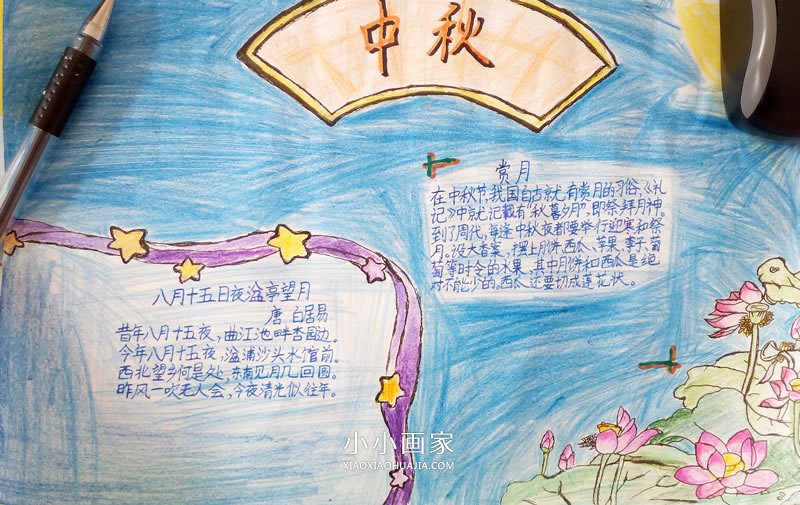 中秋
赏月
在中秋节,我国自古就有赏月的习俗,《礼
记》中就记载有“秋暮夕月”,即祭拜月神。
到了周代,每逢中秋夜都要举行迎寒和祭
月。设大香案,摆上月饼、西瓜、苹果、李子、葡
萄等时令的水果,其中月饼和西瓜是绝
对不能少的。西瓜还要切成莲花状。
八月十五日夜湓亭望月
唐 白居易
昔年八月十五夜,曲江池畔杏园边。
今年八月十五夜,湓浦沙头水馆前。
西北望乡何是处,东南见月几回圆。
昨风一吹无人会,今夜清光似往年。
小小画家
XIAOXIAOHUAJIA.COM